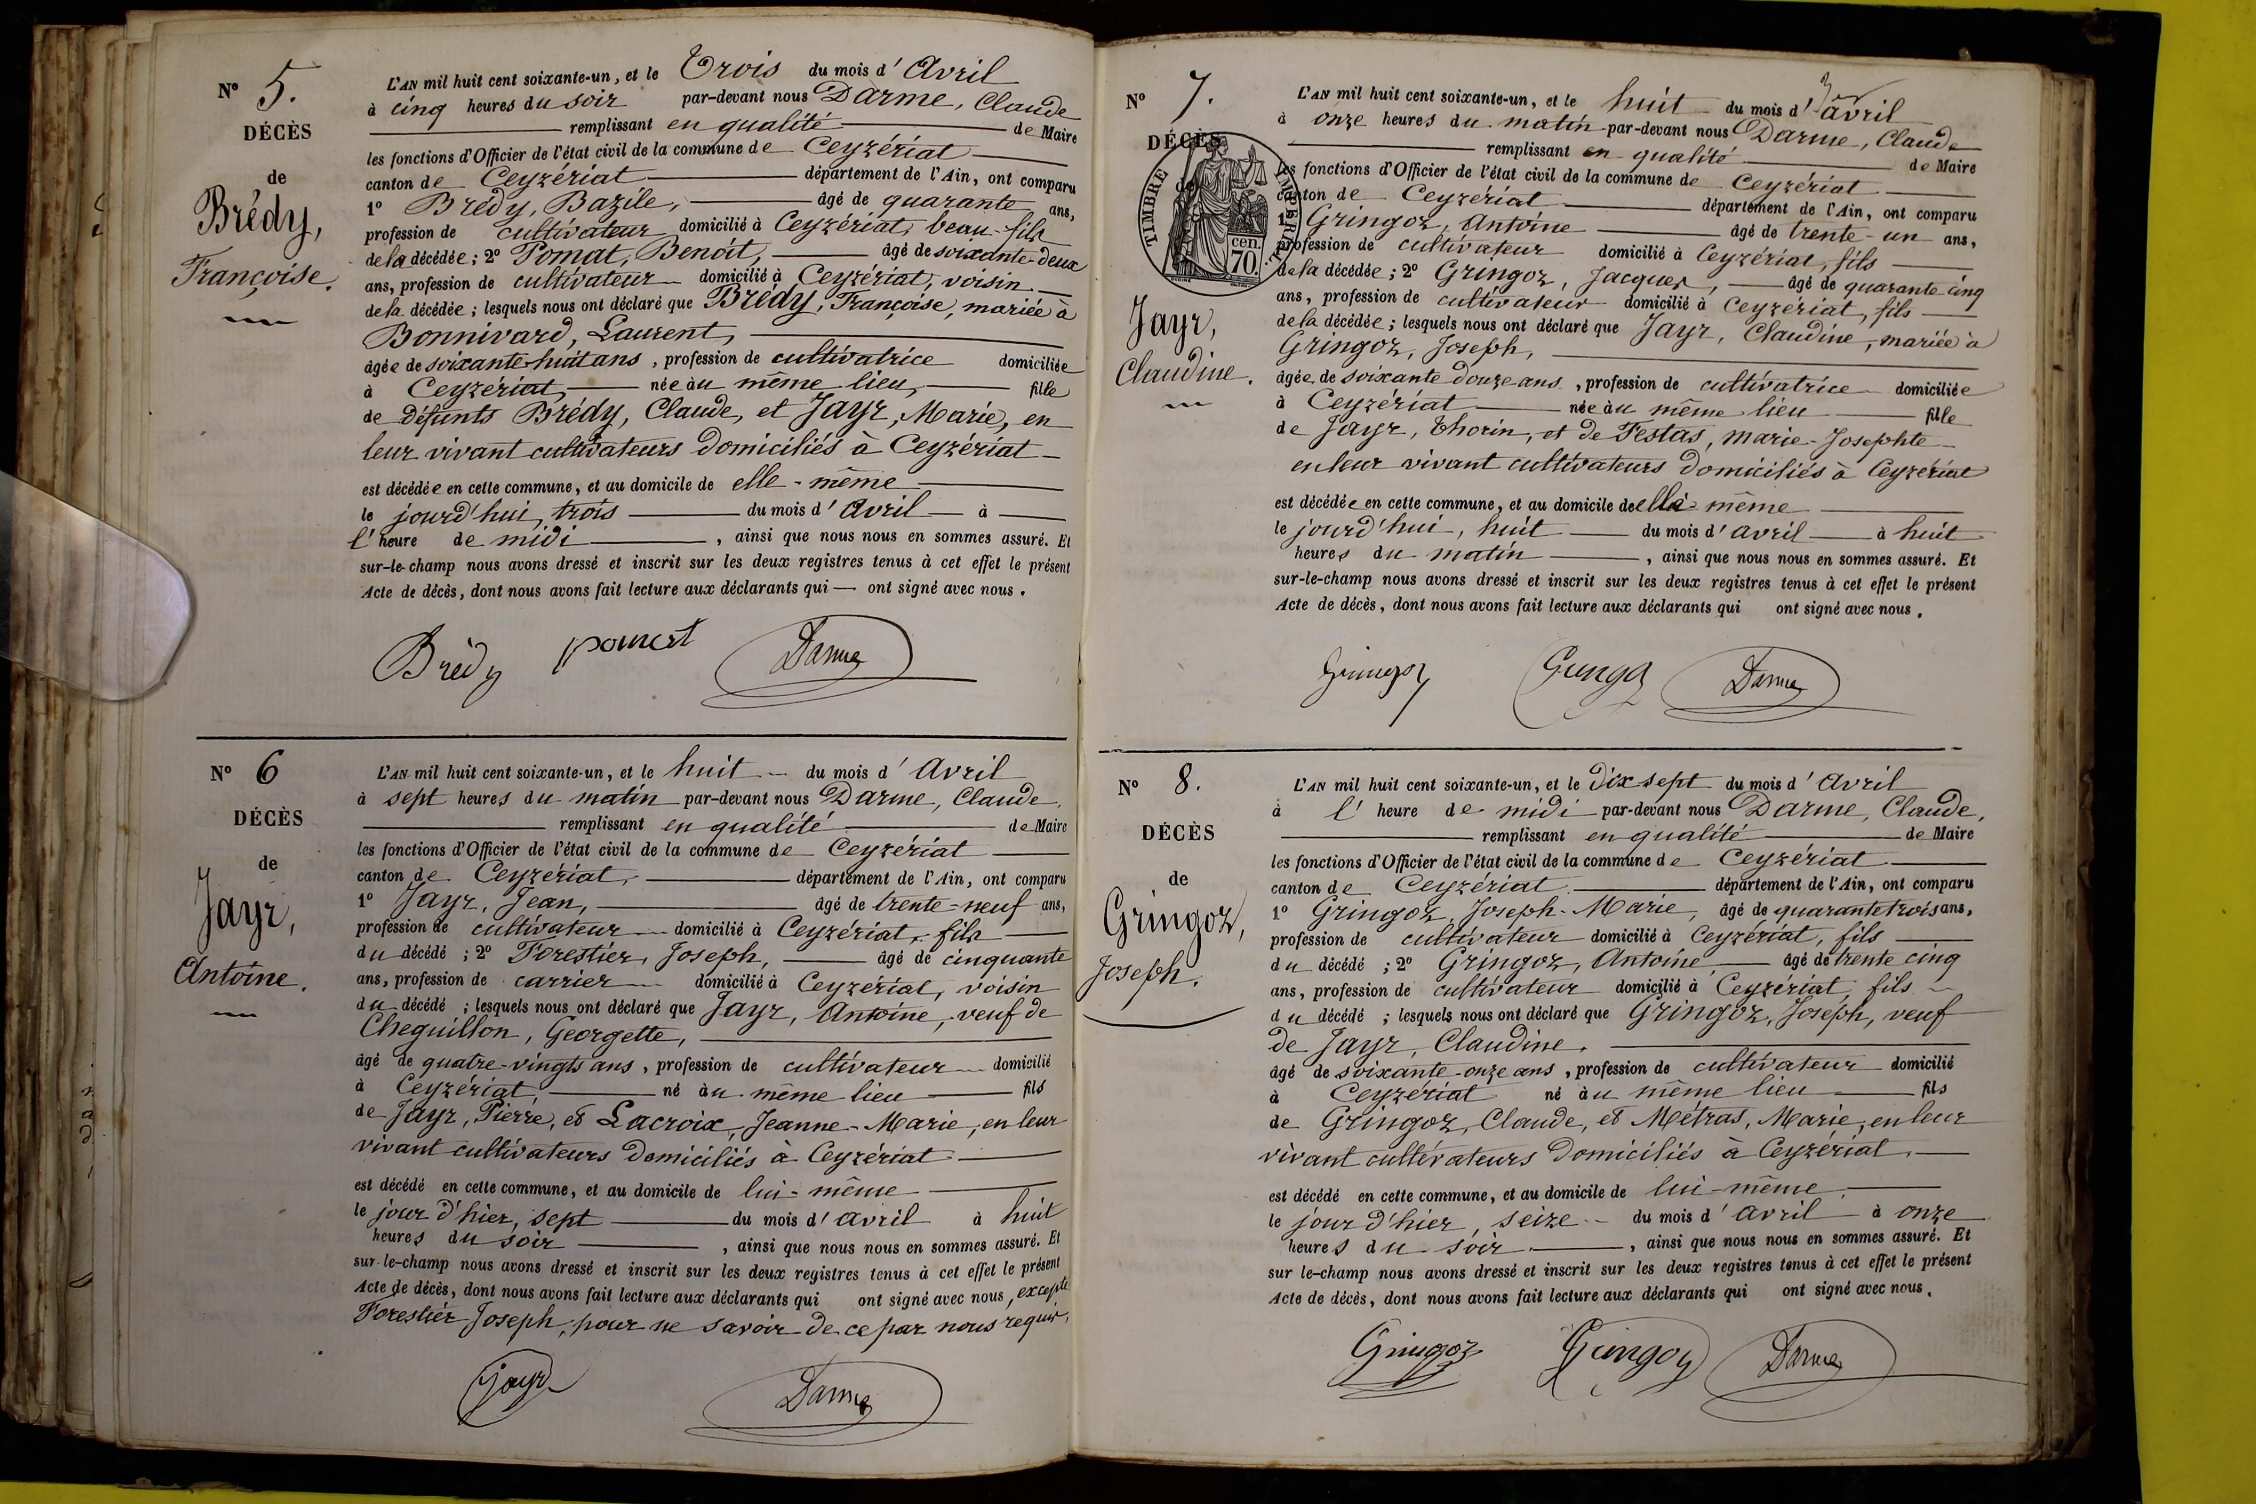 N° 5.
DÉCÈS
de
Brédy,
Françoise.
L'AN mil huit cent soixante-un, et le Trois du mois d'Avril
à cinq heures du soir par-devant nous Darme, Claude
remplissant en qualité de Maire
les fonctions d'Officier de l'état civil de la commune de Ceyzériat
canton de Ceyzériat département de l'Ain, ont comparu
1° Brédy, Bazile, âgé de quarante ans,
profession de cultivateur domicilié à Ceyzériat, beau-fils
de la décédée ; 2° Pomat, Benoit, âgé de soixante-deux
ans, profession de cultivateur domicilié à Ceyzériat, voisin
de la décédée ; lesquels nous ont déclaré que Brédy, Françoise, mariée à
Bonnivard, Laurent,
âgée de soixante-huit ans, profession de cultivatrice domiciliée
à Ceyzériat, née au même lieu, fille
de défunts Brédy, Claude, et Jayr, Marie, en
leur vivant cultivateurs domiciliés à Ceyzériat
est décédée en cette commune, et au domicile de elle-même
le jourd'hui, trois du mois d'Avril à
l'heure de midi, ainsi que nous nous en sommes assuré. Et
sur-le-champ nous avons dressé et inscrit sur les deux registres tenus à cet effet le présent
Acte de décès, dont nous avons fait lecture aux déclarants qui ont signé avec nous.
Brédy Darme
N° 6
DÉCÈS
de
Jayr,
Antoine.
L'AN mil huit cent soixante-un, et le huit du mois d'Avril
à sept heures du matin par-devant nous Darme, Claude,
remplissant en qualité de Maire
les fonctions d'Officier de l'état civil de la commune de Ceyzériat
canton de Ceyzériat, département de l'Ain, ont comparu
1° Jayr, Jean, âgé de trente-neuf ans,
profession de cultivateur domicilié à Ceyzériat, fils
du décédé ; 2° Forestier, Joseph, âgé de cinquante
ans, profession de carrier domicilié à Ceyzériat, voisin
du décédé ; lesquels nous ont déclaré que Jayr, Antoine, veuf de
Cheguillon, Georgette,
âgé de quatre-vingts ans, profession de cultivateur domicilié
à Ceyzériat, né au même lieu fils
de Jayr, Pierre, et Lacroix, Jeanne-Marie, en leur
vivant cultivateurs domiciliés à Ceyzériat
est décédé en cette commune, et au domicile de lui-même
le jour d'hier, sept du mois d'avril à huit
heures du soir, ainsi que nous nous en sommes assuré. Et
sur-le-champ nous avons dressé et inscrit sur les deux registres tenus à cet effet le présent
Acte de décès, dont nous avons fait lecture aux déclarants qui ont signé avec nous, excepté
Forestier Joseph, pour ne savoir de ce par nous requis.
Jayr Darme
N° 7.
DÉCÈS
de
TIMBRE IMPERIAL
70 cen.
Jayr,
Claudine.
L'AN mil huit cent soixante-un, et le huit du mois d'avril
à onze heures du matin par-devant nous Darme, Claude
remplissant en qualité de Maire
les fonctions d'Officier de l'état civil de la commune de Ceyzériat
canton de Ceyzériat département de l'Ain, ont comparu
1° Gringoz, Antoine âgé de trente-un ans,
profession de cultivateur domicilié à Ceyzériat, fils
de la décédée ; 2° Gringoz, Jacques, âgé de quarante-cinq
ans, profession de cultivateur domicilié à Ceyzériat, fils
de la décédée ; lesquels nous ont déclaré que Jayr, Claudine, mariée à
Gringoz, Joseph,
âgée de soixante douze ans, profession de cultivatrice domiciliée
à Ceyzériat née au même lieu fille
de Jayr, Thorin, et de Festas, marie-Josephte
en leur vivant cultivateurs domiciliés à Ceyzériat
est décédée en cette commune, et au domicile de elle-même
le jourd'hui, huit du mois d'avril à huit
heures du matin, ainsi que nous nous en sommes assuré. Et
sur-le-champ nous avons dressé et inscrit sur les deux registres tenus à cet effet le présent
Acte de décès, dont nous avons fait lecture aux déclarants qui ont signé avec nous.
Gringoz Darme
N° 8.
DÉCÈS
de
Gringoz,
Joseph.
L'AN mil huit cent soixante-un, et le dix sept du mois d'avril
à l'heure de midi par-devant nous Darme, Claude,
remplissant en qualité de Maire
les fonctions d'Officier de l'état civil de la commune de Ceyzériat
canton de Ceyzériat département de l'Ain, ont comparu
1° Gringoz, Joseph-Marie, âgé de quarante trois ans,
profession de cultivateur domicilié à Ceyzériat, fils
du décédé ; 2° Gringoz, Antoine, âgé de trente cinq
ans, profession de cultivateur domicilié à Ceyzériat, fils
du décédé ; lesquels nous ont déclaré que Gringoz, Joseph, veuf
de Jayr, Claudine.
âgé de soixante-onze ans, profession de cultivateur domicilié
à Ceyzériat né au même lieu fils
de Gringoz, Claude, et Métras, Marie, en leur
vivant cultivateurs domiciliés à Ceyzériat.
est décédé en cette commune, et au domicile de lui-même
le jour d'hier, seize du mois d'avril à onze
heures du soir, ainsi que nous nous en sommes assuré. Et
sur le-champ nous avons dressé et inscrit sur les deux registres tenus à cet effet le présent
Acte de décès, dont nous avons fait lecture aux déclarants qui ont signé avec nous.
Gringoz Gringoz Darme